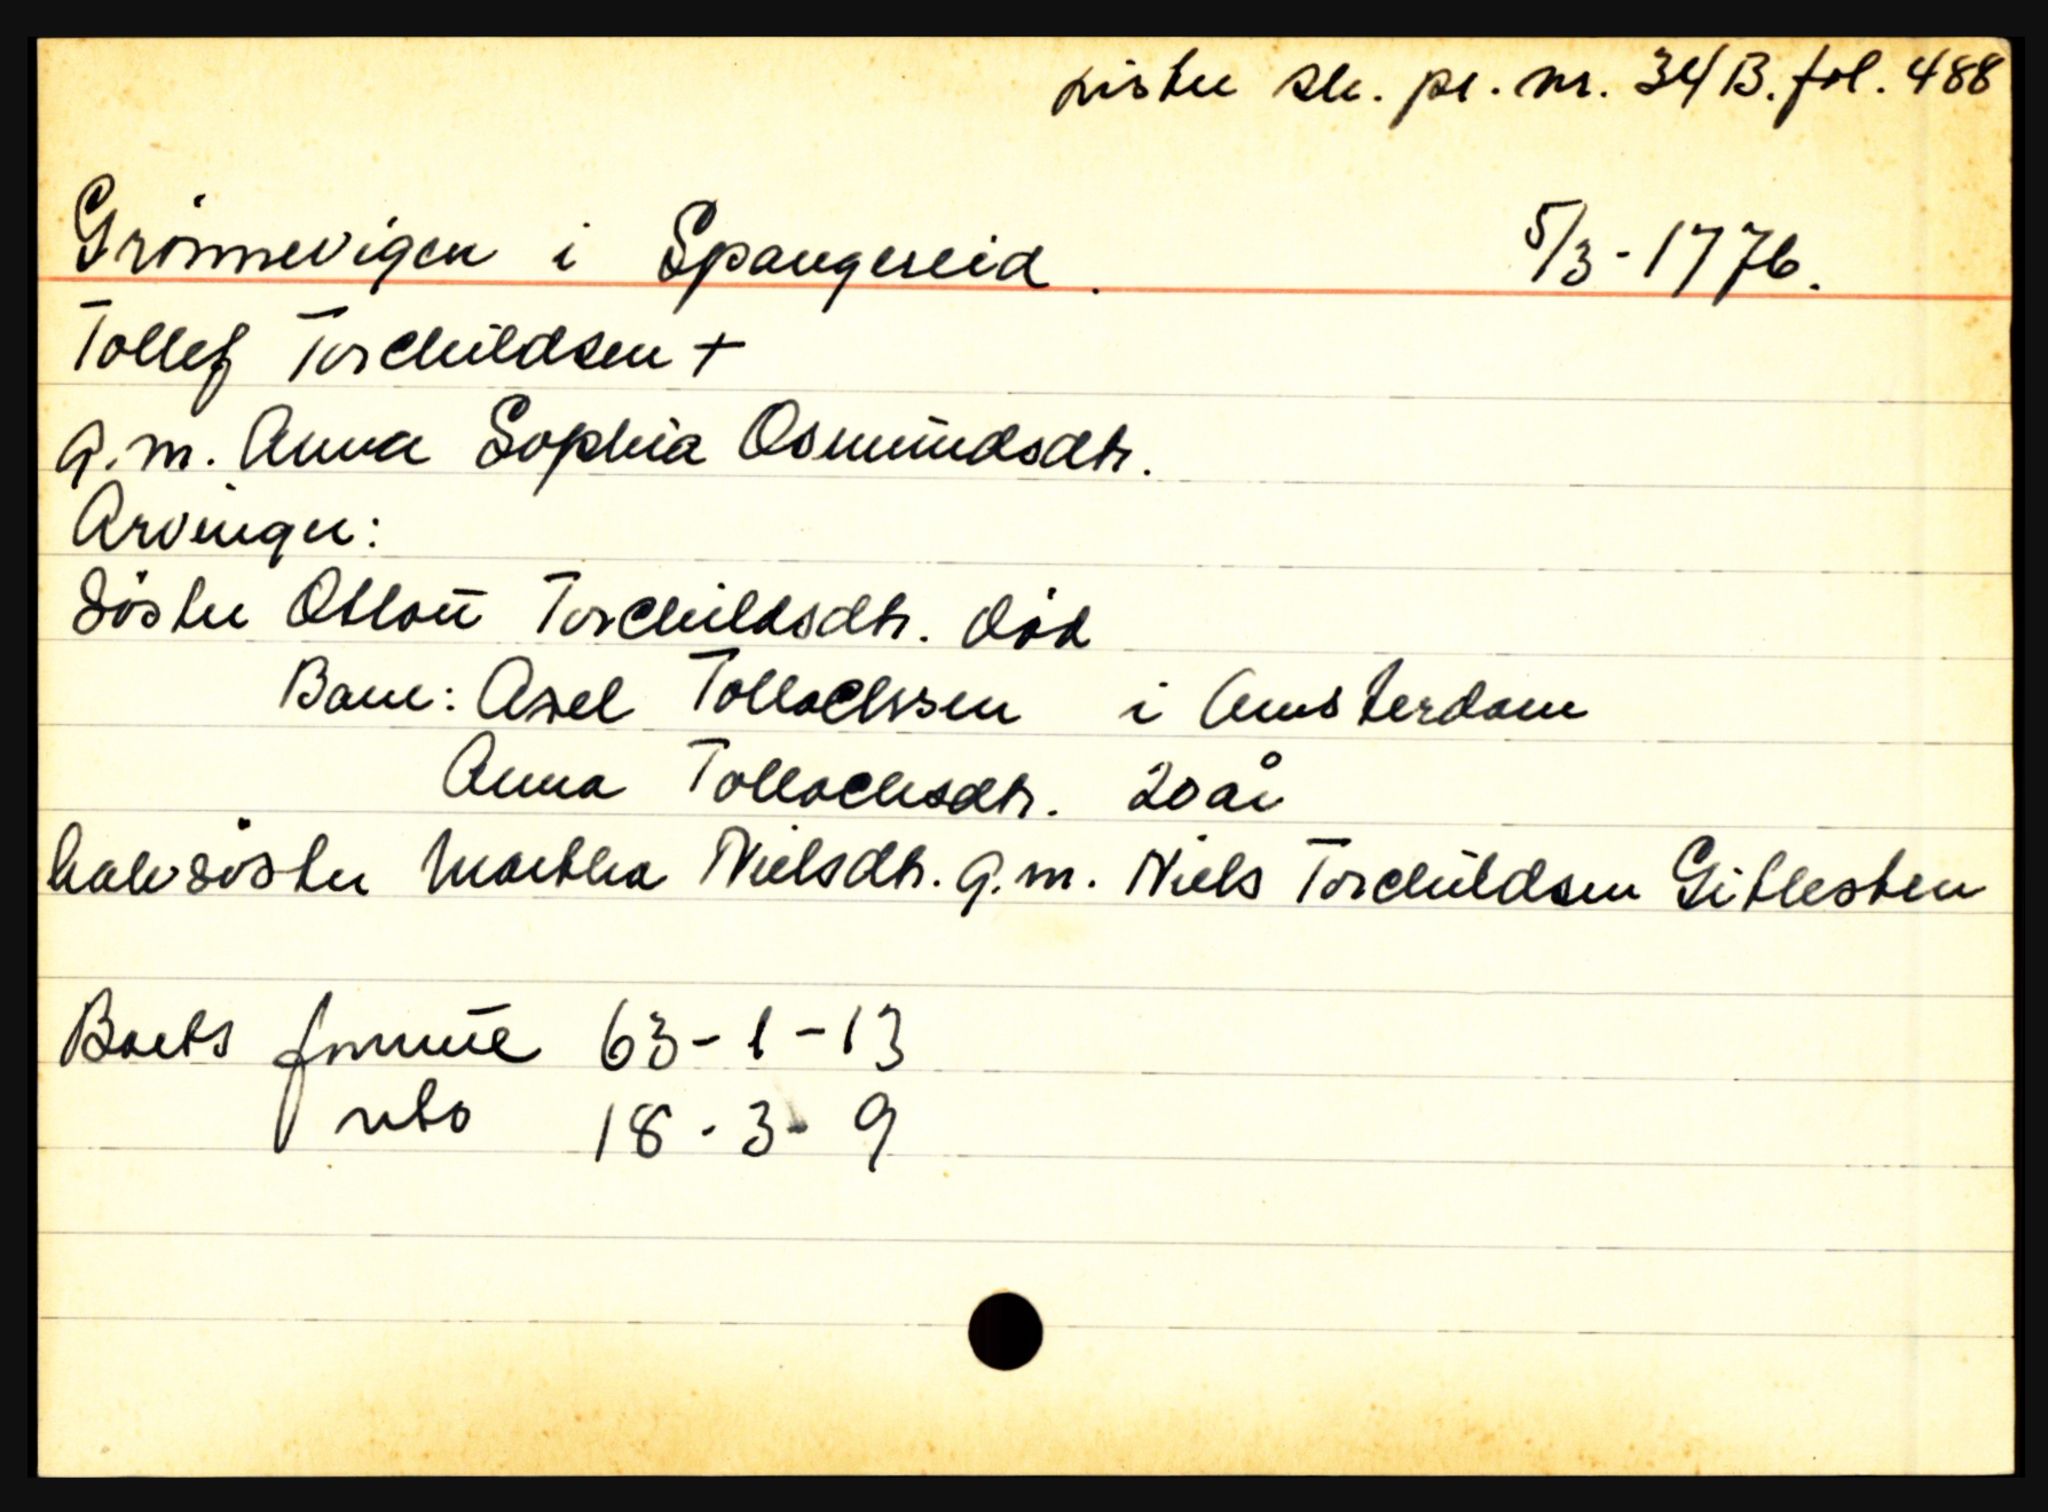 Lister sk. pr. nr. 34B. fol. 488
Grönnevigen i Spangereid. 5/3-1776.
Tollef Torchildsen +
g.m. Anna Sophia Osmundsdtr.
Arvinger:
söster Asloü Torchildsdtr. död
Barn: Axel Tollachsen i Amsterdam
Anna Tollachsdtr. 20 år
halvsöster Martha Nielsdtr. g.m. Niels Torchildsen Gitlesten
Boets formue 63-1-13
nto 18-3-9